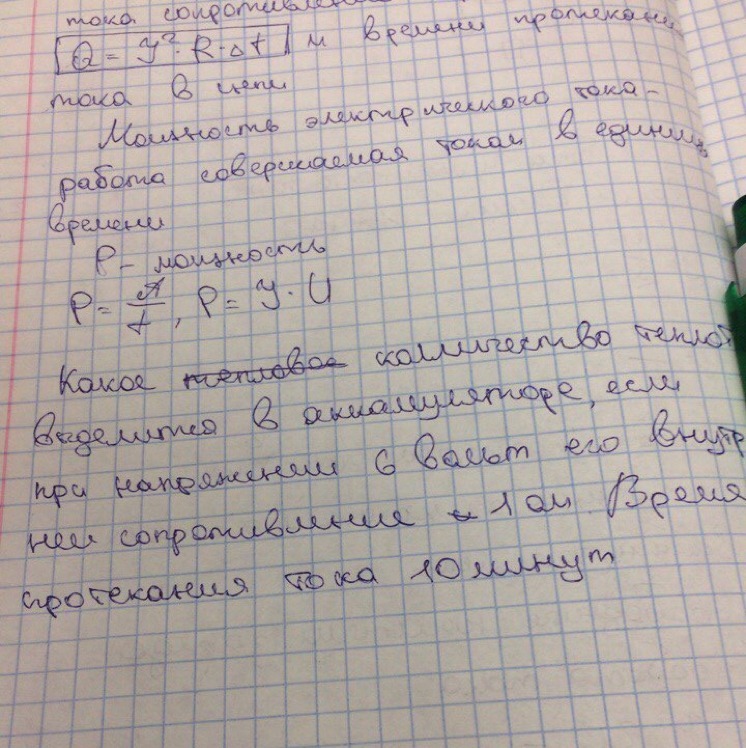 тока сопротивлени
Q = I². R. Δt и времени протекани
тока в цепи
Мощность электрического тока -
работа совершаемая током в единиц
времени
P - мощность
P = A/t, P = I. U
Какое тепловое количество теплот
выделится в аккамуляторе, если
при напряжении 6 вольт его внутр
нем сопротивление 1 ом. Время
протекания тока 10 минут